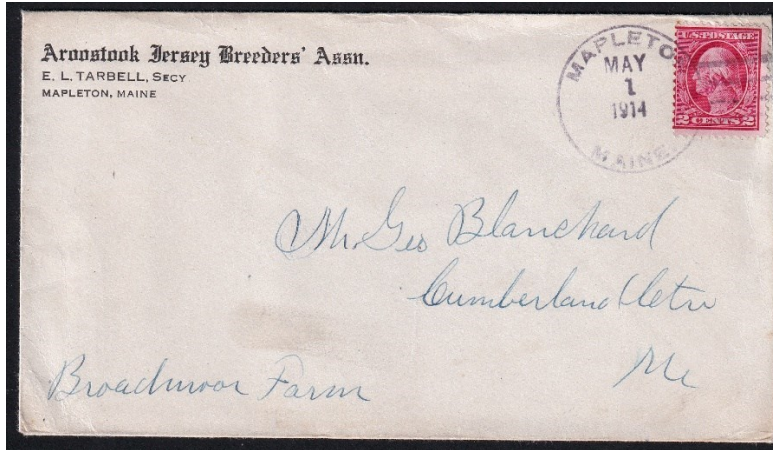 Aroostook Jersey Breeders' Assn.
E. L. TARBELL, SECY
MAPLETON, MAINE
MAPLETO
MAY
1
1914
MAINE.
U.S. POSTAGE
2 CENTS 2
Mr. Geo Blanchard
Cumberland Cetr
Me
Broadmoor Farm